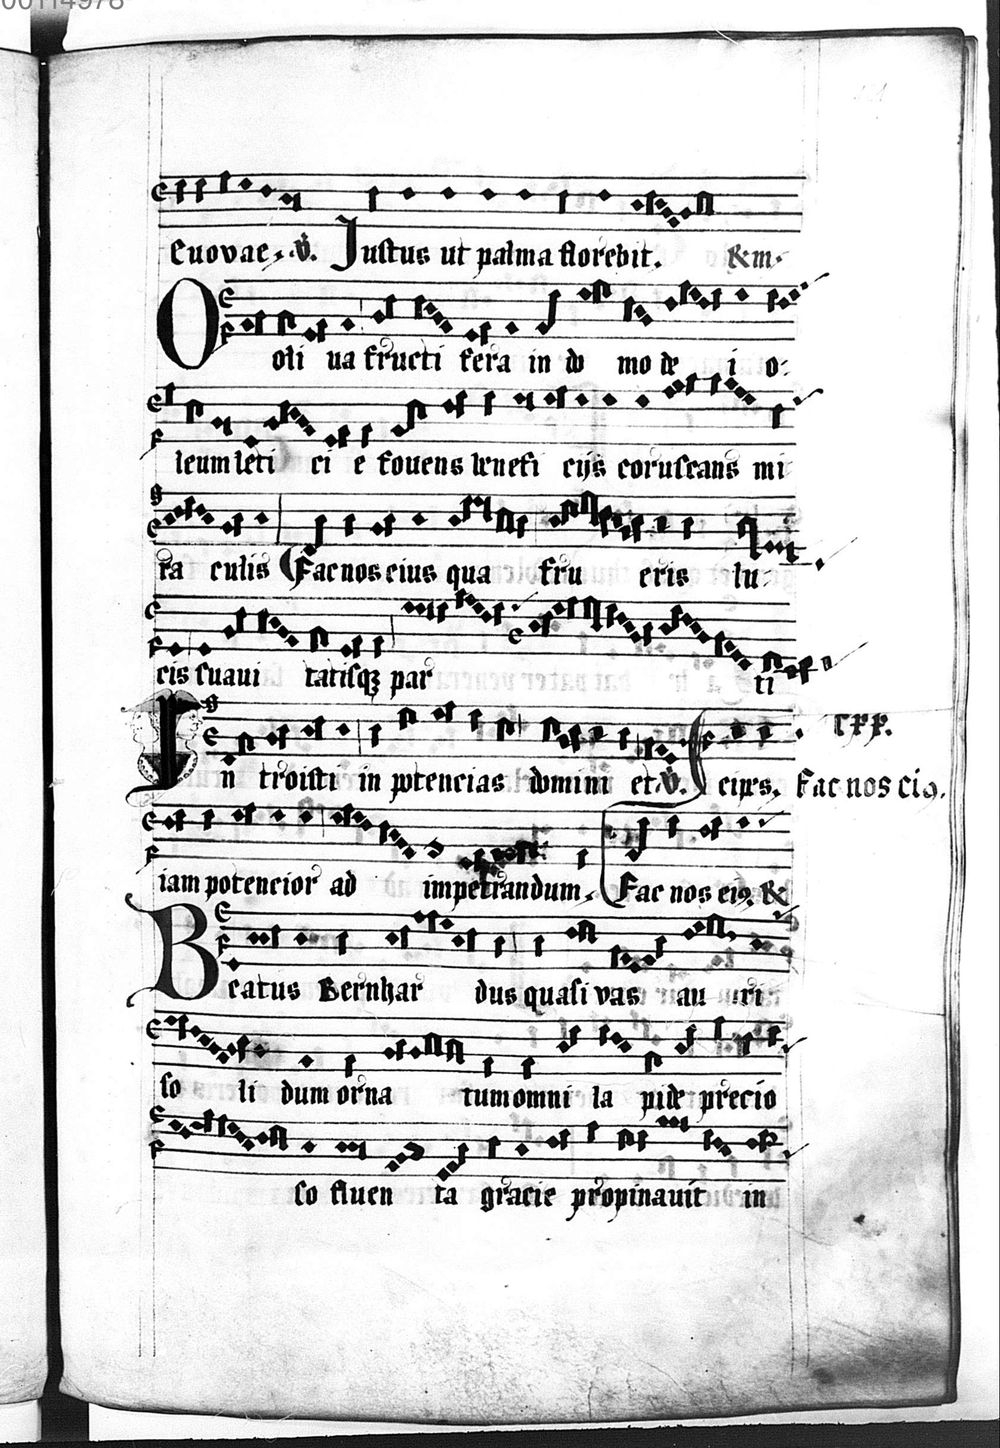 00114978
Euovae. V. Justus ut palma florebit. &m.
Oli va fructi fera in do mo de i o
leum leti ci e fovens benefi cijs coruscans mi
ra culis Fac nos eius qua fru eris lu
cis suavi tatisqz par ti
In troisti in potencias domini et V. ceip̄s. Fac nos ei9.
iam potencior ad impetrandum. Fac nos ei9. &
Beatus Bernhar dus quasi vas au ri
so li dum orna tum omni la pide precio
so fluen ta gracie propinavit in